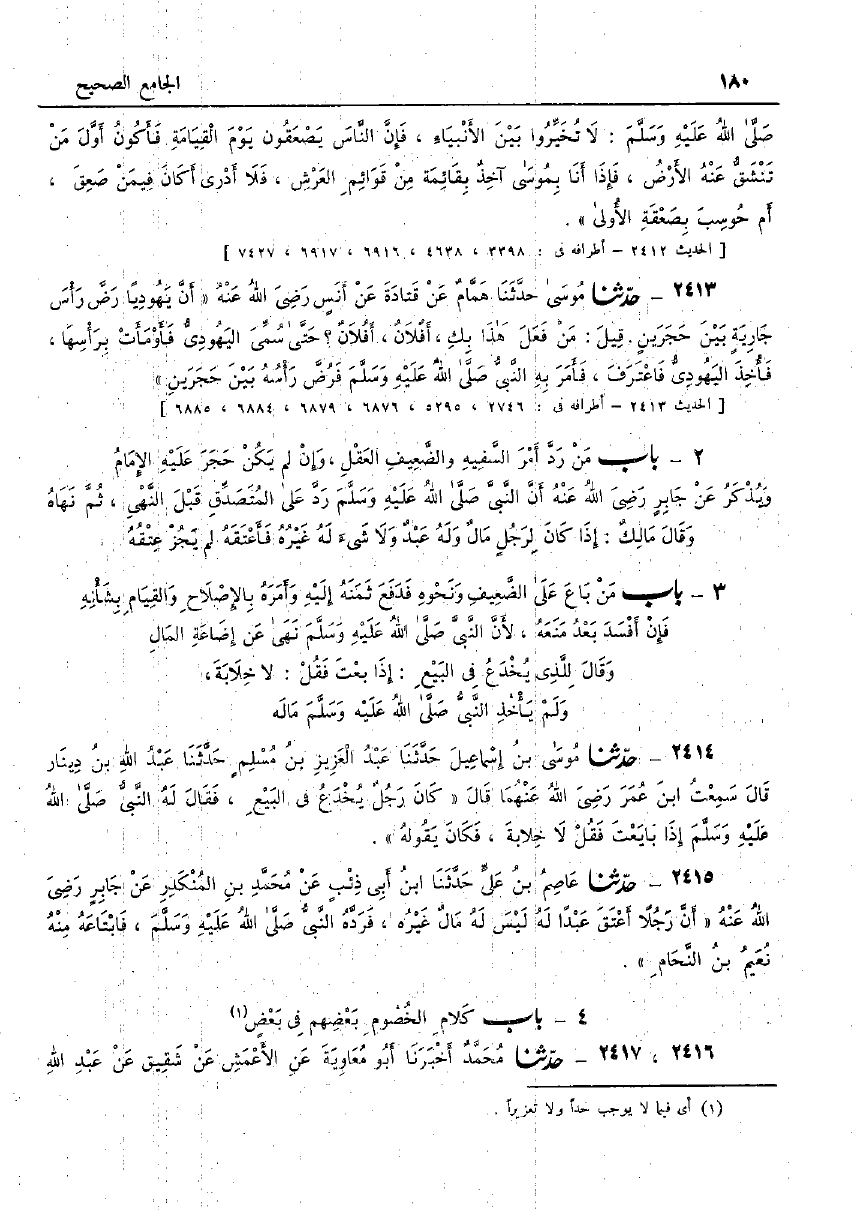 ١٨٠ الجامع الصحيح
صَلَّى اللهُ عَلَيْهِ وَسَلَّمَ : لَا تُخَيِّرُوا بَيْنَ الأَنْبِيَاءِ ، فَإِنَّ النَّاسَ يَصْعَقُون يَوْمَ الْقِيَامَةِ فَأَكُونُ أَوَّلَ مَنْ
تَنْشَقُّ عَنْهُ الأَرْضُ ، فَإِذَا أَنَا بِمُوسَى آخِذٌ بِقَائِمَة مِنْ قَوَائِمِ العَرْشِ ، فَلَا أَدْرِى أَكَانَ فِيمَنْ صَعِقَ ،
أَم حُوسِبَ بِصَعْقَةِ الأُولَى » .
[ الحديث ٢٤١٢ - أطرافه فى : ٣٣٩٨ ، ٤٦٣٨ ، ٦٩١٦ ، ٦٩١٧ ، ٧٤٢٧ ]
٢٤١٣ - حدّثنا مُوسَى حدَّثَنَا هَمَّامٌ عَنْ قتادَةَ عَنْ أَنَسٍ رَضِىَ اللهُ عَنْهُ « أَنَّ يَهُودِيًا رَضَّ رَأْسَ
جارِيَةٍ بَيْنَ حَجَرَينِ . قِيلَ : مَنْ فَعَلَ هٰذَا بِكِ ، أَفُلَانٌ ، أَفُلَانٌ ؟ حَتَّى سُمِّىَ اليَهُودِىُّ فَأَوْمَأَتْ بِرَأْسِهَا ،
فَأُخِذَ اليَهُودِىُّ فَاعْتَرَفَ ، فَأَمَرَ بِهِ النَّبِىُّ صَلَّى اللهُ عَلَيْهِ وَسَلَّمَ فَرُضَّ رَأْسُهُ بَيْنَ حَجَرَينِ »
[ الحديث ٢٤١٣ - أطرافه فى : ٢٧٤٦ ، ٥٢٩٥ ، ٦٨٧٦ ، ٦٨٧٩ ، ٦٨٨٤ ، ٦٨٨٥ ]
٢ - باب مَنْ رَدَّ أَمْرَ السَّفِيهِ والضَّعِيفِ العَقْلِ ، وَإنْ لم يَكُنْ حَجَرَ عَلَيْهِ الإِمَامُ
وَيُذْكَرُ عَنْ جَابِرٍ رَضِىَ اللهُ عَنْهُ أَنَّ النَّبِىَّ صَلَّى اللهُ عَلَيْهِ وَسَلَّمَ رَدَّ عَلَى المُتَصَدِّقِ قَبْلَ النَّهْىِ ، ثُمَّ نَهَاهُ
وَقَالَ مَالِكٌ : إِذَا كَانَ لِرَجُلٍ مَالٌ وَلَهُ عَبْدٌ وَلَا شَىءَ لَهُ غَيْرُهُ فَأَعْتَقَهُ لم يَجُزْ عِتْقُهُ
٣ - باب مَنْ بَاعَ عَلَى الضَّعِيفِ وَنَحْوِهِ فَدَفَعَ ثَمَنَهُ إِلَيْهِ وَأَمَرَهُ بِالإِصْلَاحِ وَالقِيَامِ بِشَأْنِهِ
فَإِنْ أَفْسَدَ بَعْدُ مَنَعَهُ ، لأَنَّ النَّبِىَّ صَلَّى اللهُ عَلَيْهِ وَسَلَّمَ نَهَى عَنْ إِضَاعَةِ المَالِ
وَقَالَ لِلَّذِى يُخْدَعُ فِى البَيْعِ : إِذَا بِعْتَ فَقُلْ : لا خِلابَةَ ،
وَلَمْ يَأْخُذِ النَّبِىُّ صَلَّى اللهُ عَلَيْه وَسَلَّمَ مَالَه
٢٤١٤ - حدّثنا مُوسَى بنُ إِسْمَاعِيلَ حَدَّثَنَا عَبْدُ الْعَزِيزِ بنُ مُسْلِمٍ حَدَّثَنَا عَبْدُ اللهِ بنُ دِينَار
قَالَ سَمِعْتُ ابنَ عُمَرَ رَضِىَ اللهُ عَنْهُمَا قَالَ « كَانَ رَجُلٌ يُخْدَعُ فى البَيْعِ ، فَقَالَ لَهُ النَّبِىُّ صَلَّى اللهُ
عَلَيْهِ وَسَلَّمَ إِذَا بَايَعْتَ فَقُلْ لَا خِلابةَ ، فَكَانَ يَقُولهُ » .
٢٤١٥ - حدّثنا عَاصِمُ بنُ عَلِىٍّ حَدَّثَنَا ابنُ أَبِى ذِئْبٍ عَنْ مُحَمَّدِ بنِ المُنْكَدِرِ عَنْ جَابِرٍ رَضِىَ
اللهُ عَنْهُ « أَنَّ رَجُلًا أَعْتَقَ عَبْدًا لَهُ لَيْسَ لَهُ مَالٌ غَيْرُه ، فَرَدَّهُ النَّبِىُّ صَلَّى اللهُ عَلَيْهِ وَسَلَّمَ ، فَابْتَاعَهُ مِنْهُ
نُعَيمُ بنُ النَّحَامِ » .
٤ - باب كَلَامِ الخُصُومِ بَعْضِهِم فِى بَعْضٍ (١)
٢٤١٦ ، ٢٤١٧ - حدّثنا مُحَمَّدٌ أَخْبَرَنَا أَبُو مُعَاوِيَةَ عَنِ الأَعْمَشِ عَنْ شَقِيقٍ عَنْ عَبْدِ اللهِ
(١) أى فيما لا يوجب حداً ولا تعزيراً .